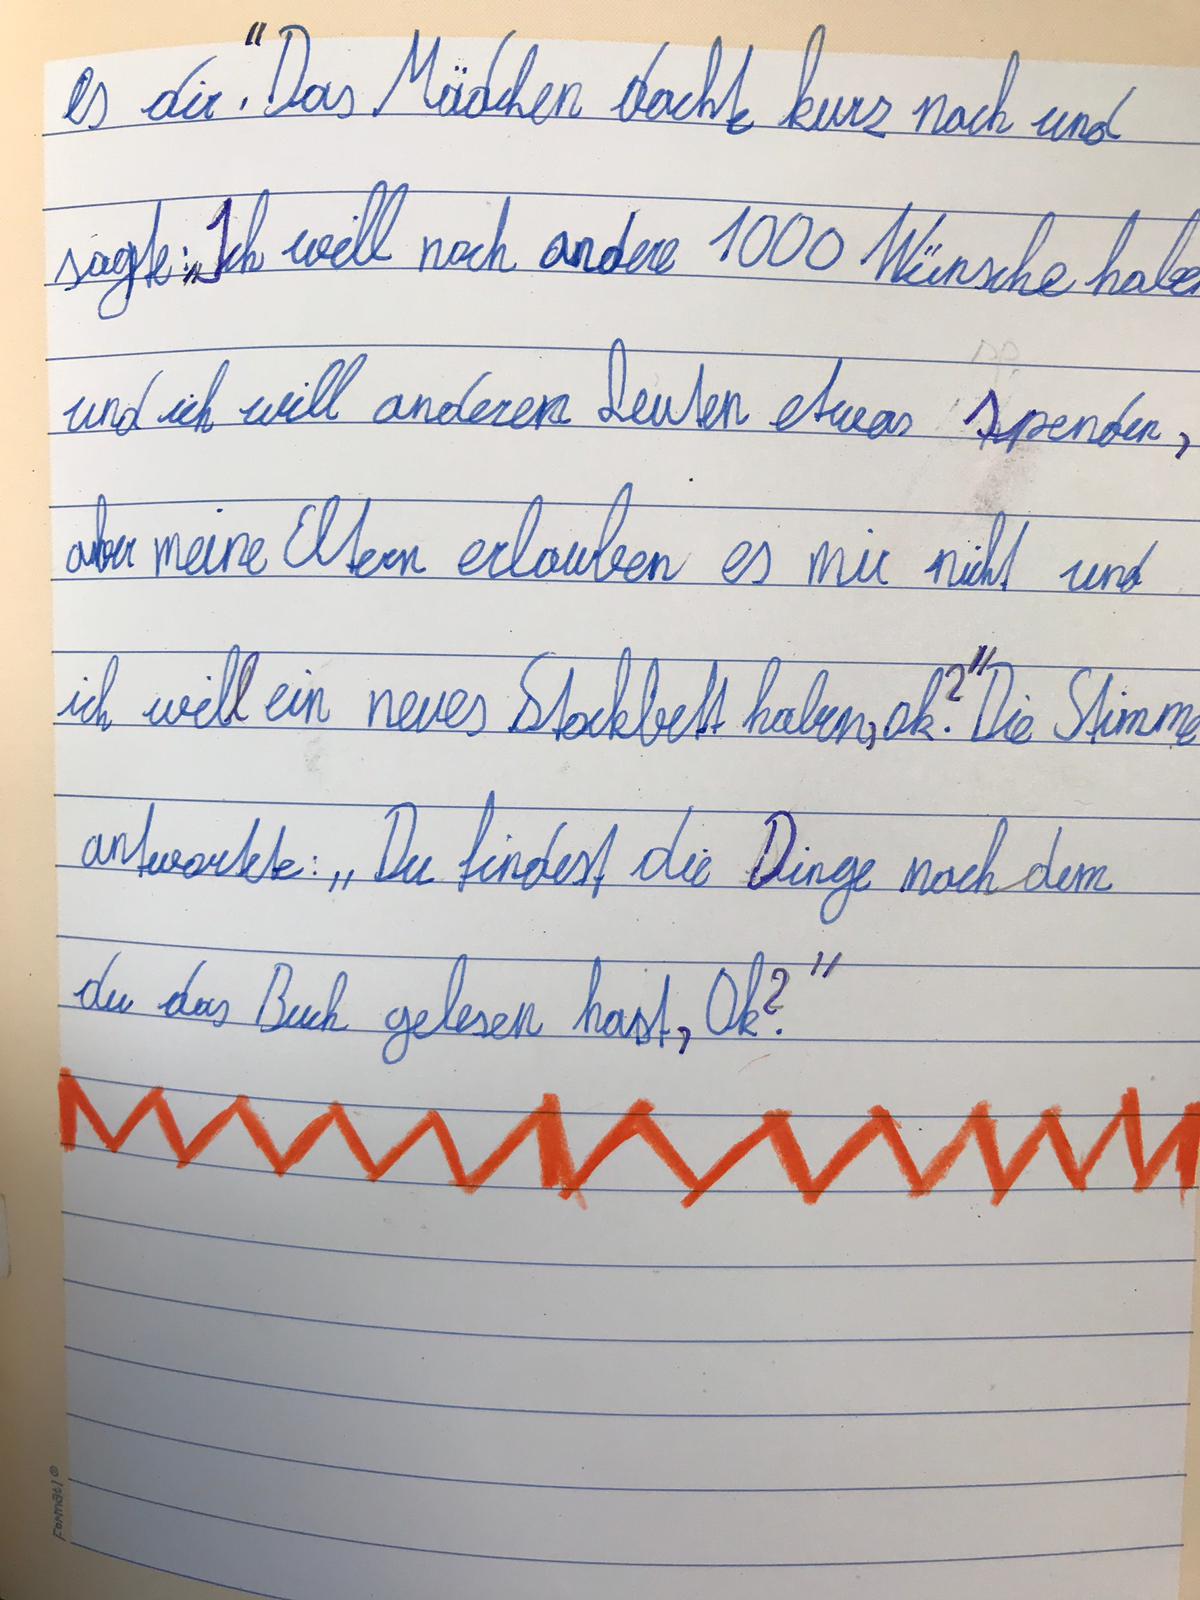 es dir." Das Mädchen dachte kurz nach und
sagte: „Ich will noch andere 1000 Wünsche haben
und ich will anderen Leuten etwas spenden,
aber meine Eltern erlauben es mir nicht und
ich will ein neues Stockbett haben, ok?" Die Stimme
antwortete: „Du findest die Dinge nach dem
du das Buch gelesen hast, Ok?"
Formati ©